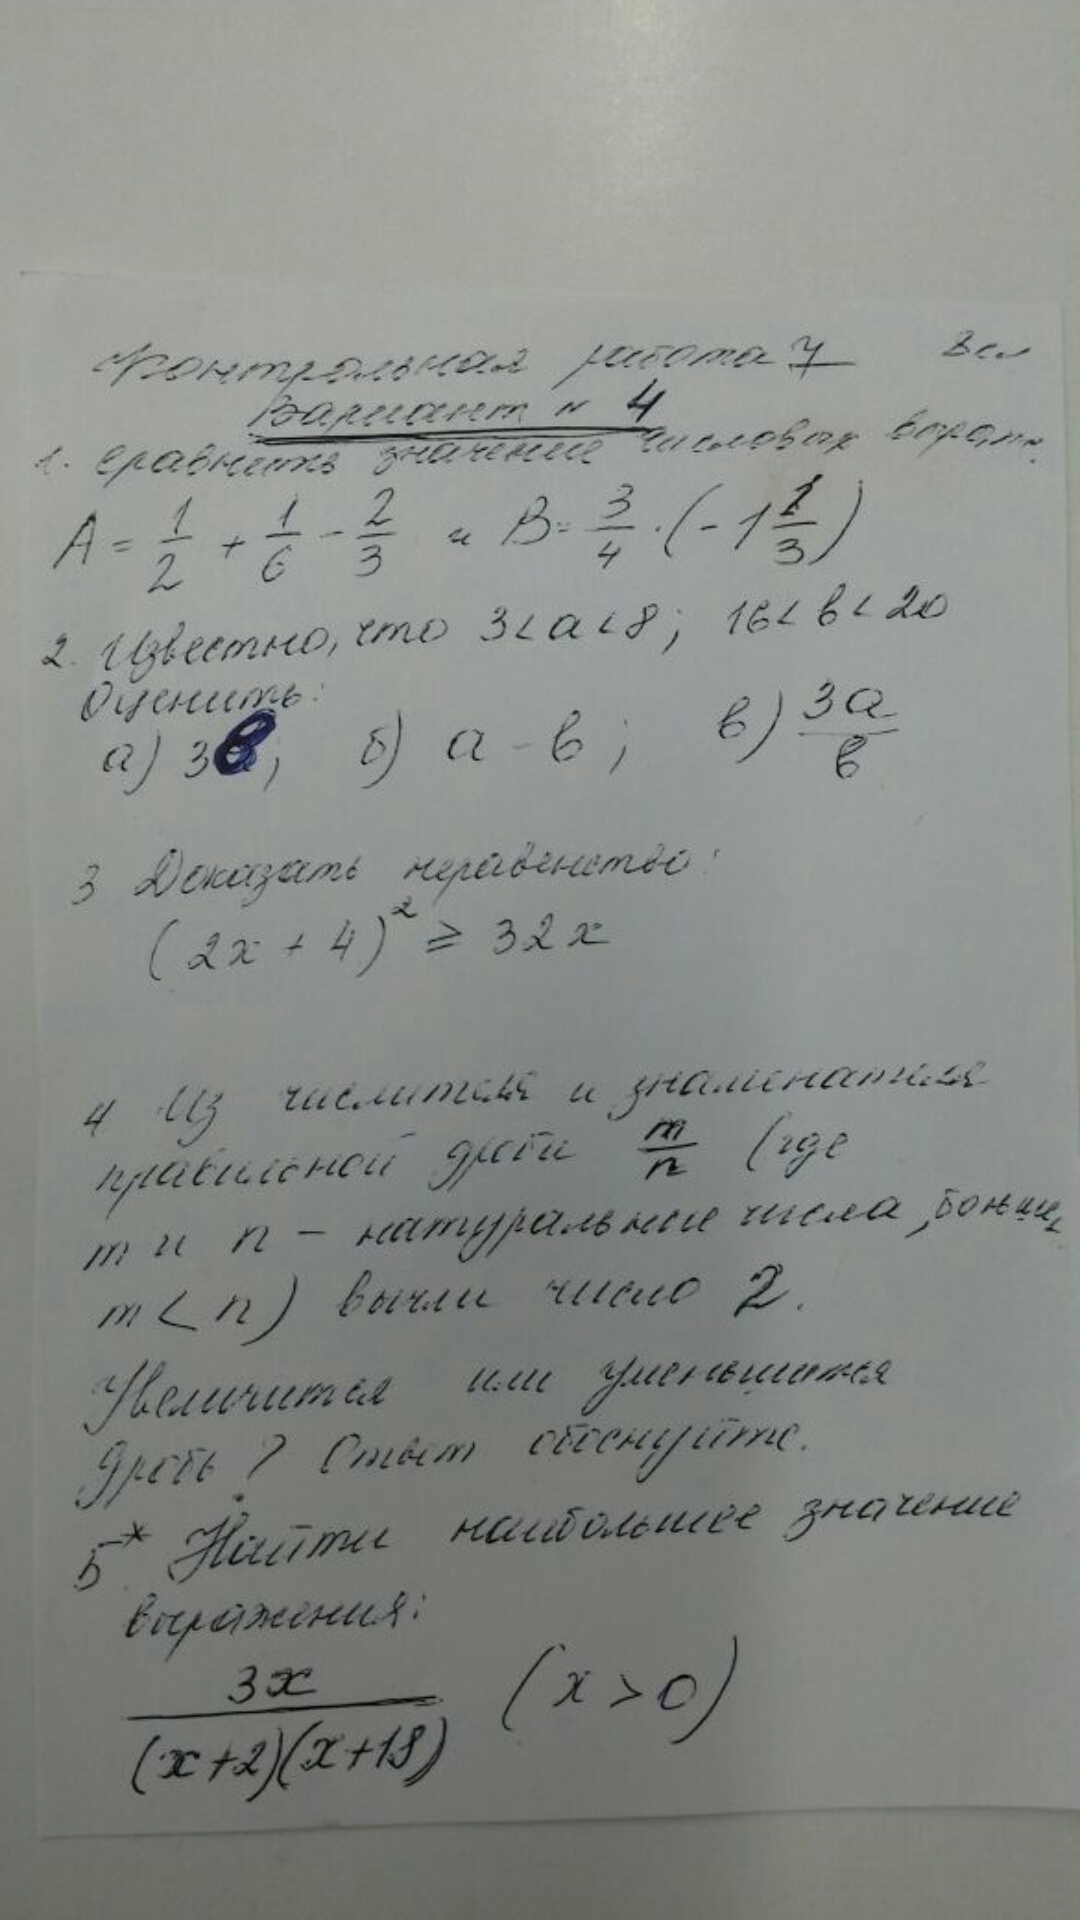 Контрольная работа 7 8 кл
Вариант № 4
1. Сравнить значение числовых выраж.
A = 1/2 + 1/6 - 2/3 и B = 3/4 · (-1 1/3)
2. Известно, что 3 < a < 8; 16 < b < 20
Оценить:
а) 3в; б) a - b; в) 3a/b
3 Доказать неравенство:
(2x + 4)² ≥ 32x
4 Из числителя и знаменателя
правильной дроби m/n (где
m и n - натуральные числа, больше
m < n) вычли число 2.
Увеличится или уменьшится
дробь? Ответ обоснуйте.
5* Найти наибольшее значение
выражения:
3x/((x+2)(x+18)) (x > 0)